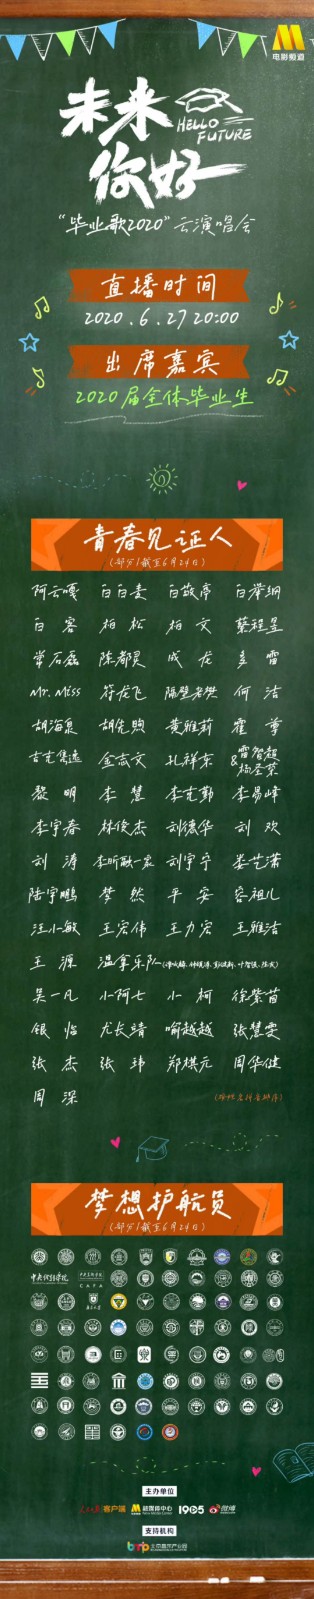 电影频道
未来
你好
HELLO
FUTURE
“毕业歌2020”云演唱会
直播时间
2020.6.27 20:00
出席嘉宾
2020届全体毕业生
青春见证人
(部分/截至6月24日)
阿云嘎 白百春 白敬亭 白举纲
白客 柏松 柏文 蔡程昱
常石磊 陈都灵 成龙 多雷
Mr. Miss 符龙飞 隔壁老樊 何洁
胡海泉 胡先煦 黄雅莉 霍尊
吉克隽逸 金志文 孔祥东 雷智超&杨圣荣
黎明 李慧 李克勤 李易峰
李宇春 林俊杰 刘德华 刘欢
刘涛 李昕融一家 刘宇宁 娄艺潇
陆宇鹏 梦然 平安 容祖儿
汪小敏 王宏伟 王力宏 王雅洁
王源 温拿乐队
吴一凡 小阿七 小柯 徐紫茵
银临 尤长靖 喻越越 张慧雯
张杰 张玮 郑棋元 周华健
周深
(按姓名拼音排序)
梦想护航员
(部分/截至6月24日)
主办单位
客户端 融媒体中心 1905 微博
支持机构